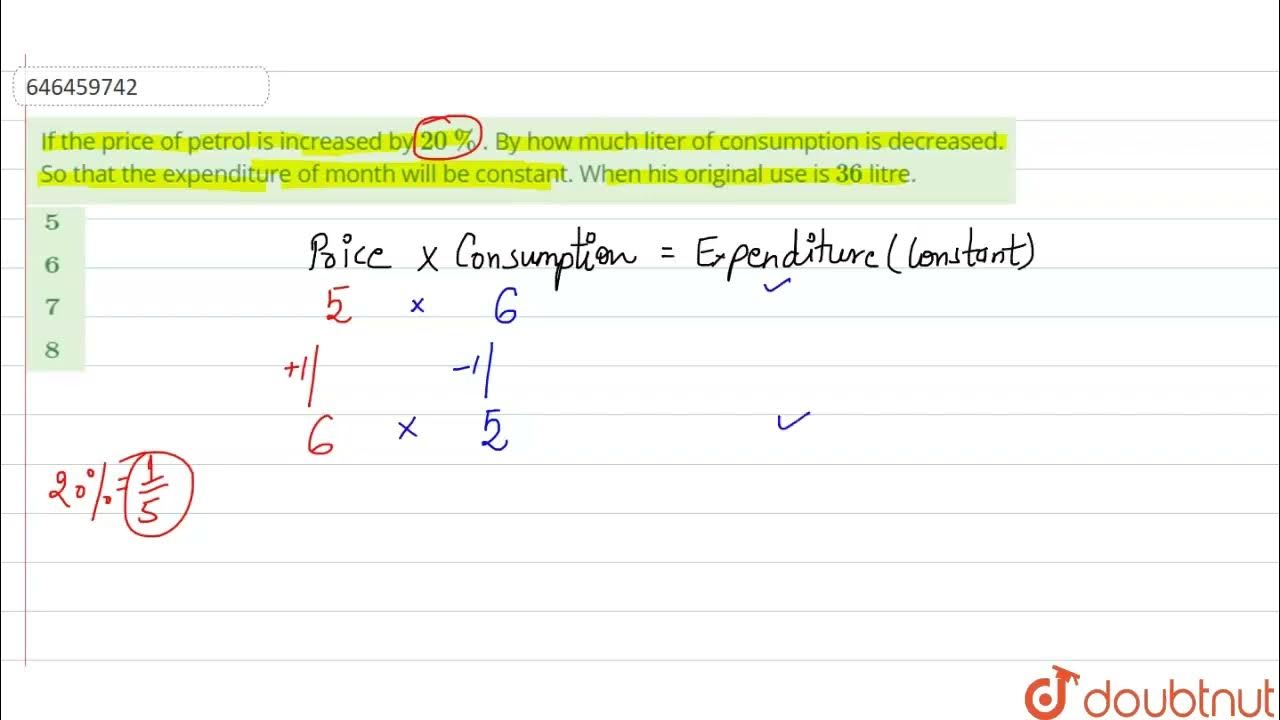 646459742
If the price of petrol is increased by 20 % . By how much liter of consumption is decreased.
So that the expenditure of month will be constant. When his original use is 36 litre.
5
6
7
8
Price × Consumption = Expenditure (Constant)
5 × 6 ✓
+1 -1
6 × 5 ✓
20% = 1/5
doubtnut